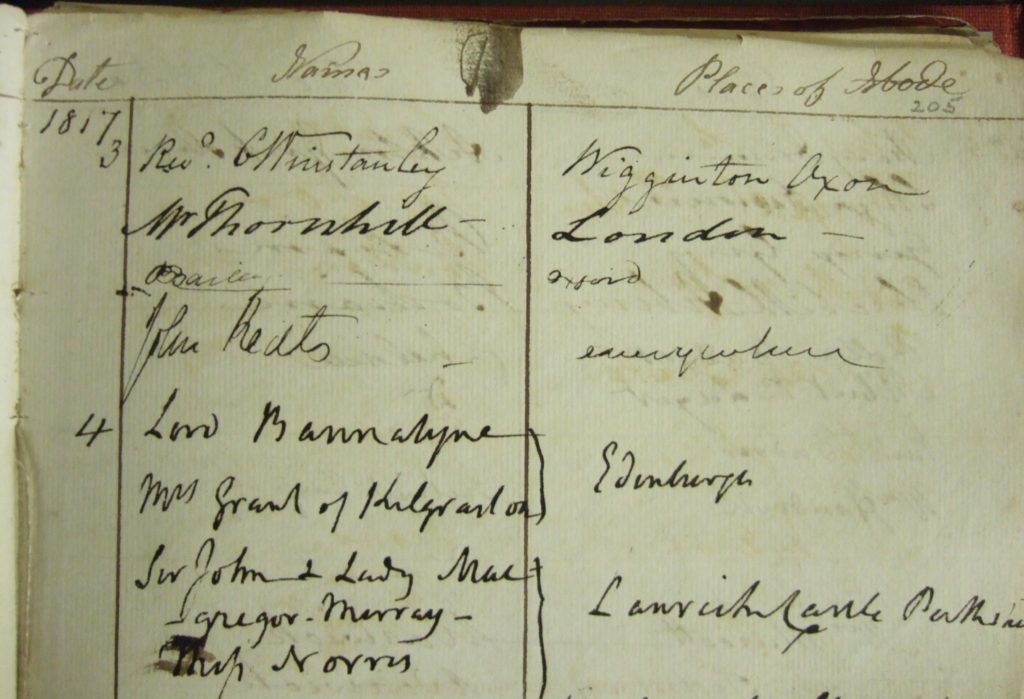 Date Names Places of Abode
205
1817
3 Revd. C Winstanley Wigginton Oxon
Mr Thornhill – London –
Bailey oxord
John Keats – everywhere
4 Lord Bannatyne
Edinburgh
Mrs Grant of Kilgraston
Sir John & Lady Mac
Lanrick Castle Perthshire
-gregor-Murray-
Miss Norris